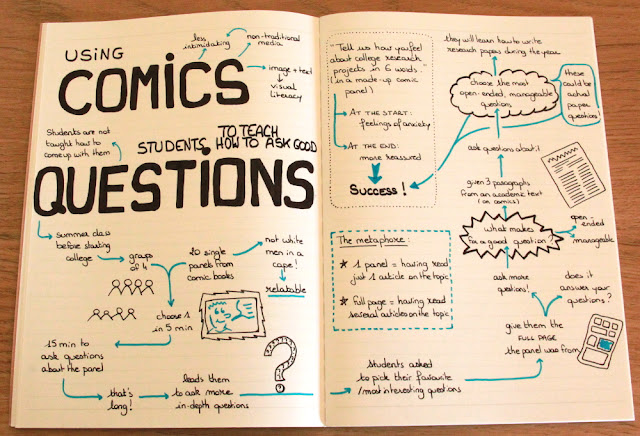 USING
COMICS
less
intimidating
non-traditional
media
image + text
visual
literacy
Students are not
taught how to
come up with them
STUDENTS
TO TEACH
HOW TO ASK GOOD
QUESTIONS
summer class
before starting
college
groups
of 4
20 single
panels from
comic books
not white
men in a
cape!
relatable
choose 1
in 5 min
15 min to
ask questions
about the panel
that's
long!
leads them
to ask more
in-depth questions
?
"Tell us how you feel
about college research
projects in 6 words"
(in a made-up comic
panel)
AT THE START:
feelings of anxiety
AT THE END:
more reassured
SUCCESS!
The metaphore:
* 1 panel = having read
just 1 article on the topic
* full page = having read
several articles on the topic
Students asked
to pick their favourite
/most interesting questions
give them the
FULL PAGE
the panel was from
ask more
questions!
does it
answer your
questions?
what makes
for a good question?
open-
ended
manageable
given 3 paragraphs
from an academic text
(on comics)
ask questions about it
choose the most
open-ended, manageable
questions
these
could be
actual
paper
questions
they will learn how to write
research papers during the year